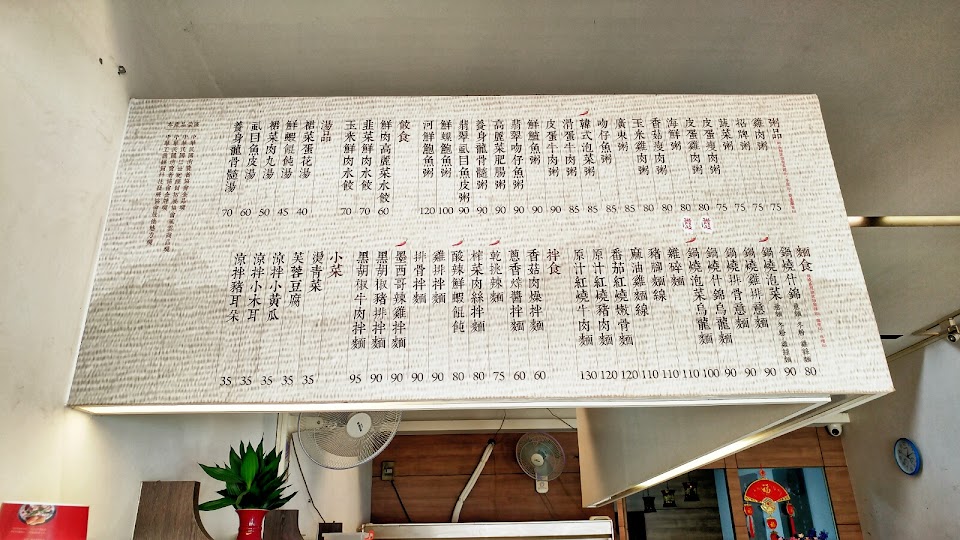 粥品
雞肉粥 75
招牌粥 75
蔬菜粥 75
皮蛋瘦肉粥 80
皮蛋雞肉粥 80
海鮮粥 80
香菇瘦肉粥 80
玉米雞肉粥 80
廣東粥 85
吻仔魚粥 85
韓式泡菜粥 85
滑蛋牛肉粥 85
皮蛋牛肉粥 90
鮮鱸魚粥 90
翡翠吻仔魚粥 90
高麗菜肥腸粥 90
養身龍骨髓粥 90
翡翠虱目魚皮粥 90
鮮蝦鮑魚粥 100
河鮮鮑魚粥 120
餃食
鮮肉高麗菜水餃 60
韭菜鮮肉水餃 70
玉米鮮肉水餃 70
湯品
裙菜蛋花湯 40
鮮蝦餛飩湯 45
裙菜肉丸湯 50
虱目魚皮湯 60
養身龍骨髓湯 70
麵食
鍋燒什錦 意麵 冬粉 雞絲麵 80
鍋燒泡菜 意麵 冬粉 雞絲麵 90
鍋燒雞排意麵 90
鍋燒排骨意麵 90
鍋燒什錦烏龍麵 100
鍋燒泡菜烏龍麵 110
雞碎麵 110
豬腳麵線 110
麻油雞麵線 110
番茄紅燒嫩骨麵 120
原汁紅燒豬肉麵 120
原汁紅燒牛肉麵 130
拌食
香菇肉燥拌麵 60
蔥香炸醬拌麵 60
乾挑辣麵 75
榨菜肉絲拌麵 80
酸辣鮮蝦餛飩 80
雞排拌麵 90
排骨拌麵 90
墨西哥辣雞拌麵 90
黑胡椒豬排拌麵 90
黑胡椒牛肉拌麵 95
小菜
燙青菜 35
芙蓉豆腐 35
涼拌小黃瓜 35
涼拌小木耳 35
涼拌豬耳朵 35
福